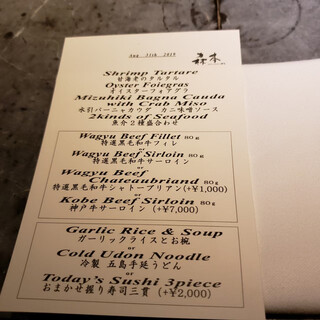 Aug 31th 2019
Shrimp Tartare
甘海老のタルタル
Oyster Foiegras
オイスターフォアグラ
Mizuhiki Bagna Cauda
with Crab Miso
水引バーニャカウダ カニ味噌ソース
2kinds of Seafood
魚介2種盛合わせ
Wagyu Beef Fillet 80g
特選黒毛和牛フィレ
or
Wagyu Beef Sirloin 80g
特選黒毛和牛サーロイン
or
Wagyu Beef
Chateaubriand 80g
特選黒毛和牛シャトーブリアン (+¥1,000)
or
Kobe Beef Sirloin 80g
神戸牛サーロイン (+¥7,000)
Garlic Rice & Soup
ガーリックライスとお椀
or
Cold Udon Noodle
冷製 五島手延うどん
or
Today's Sushi 3piece
おまかせ握り寿司三貫 (+¥2,000)